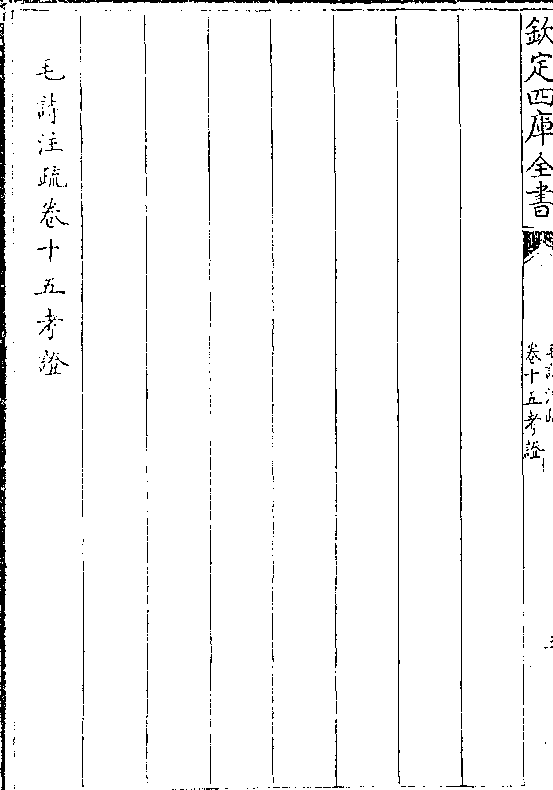 欽定四庫全書
卷十五考證
毛詩注疏卷十五考證